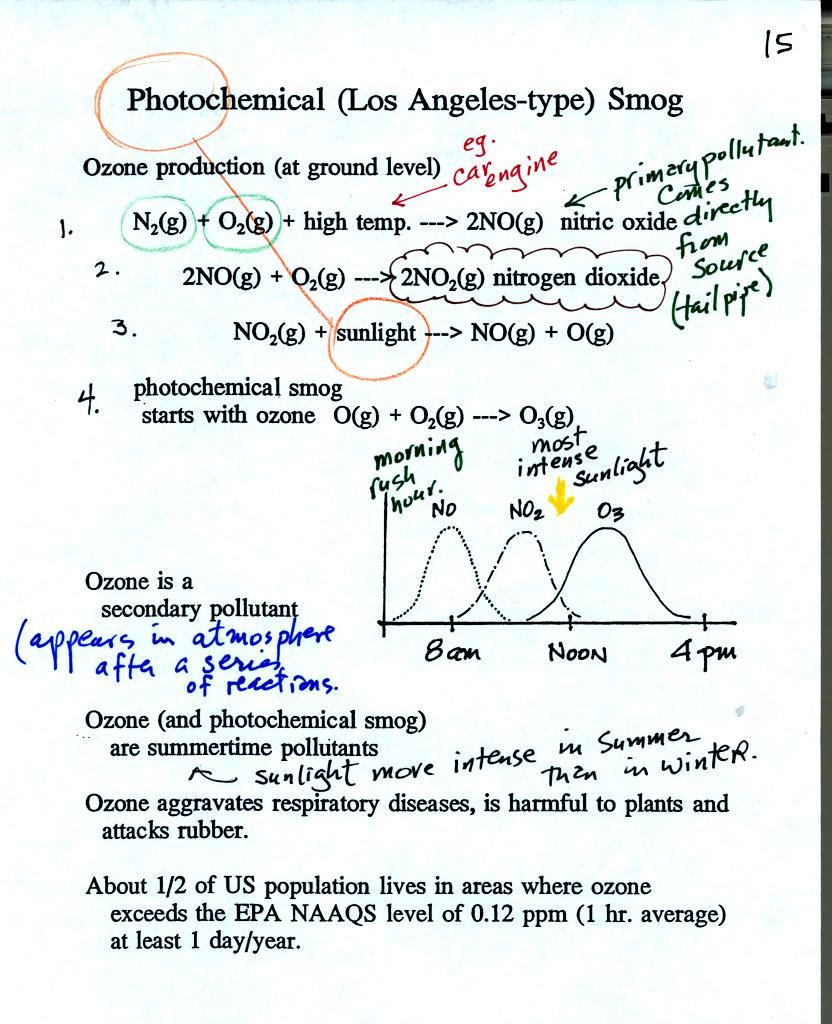 15
Photochemical (Los Angeles-type) Smog
Ozone production (at ground level)
eg.
car engine
primary pollutant.
comes
directly
from
source
(tail pipe)
1. N₂(g) + O₂(g) + high temp. ---> 2NO(g) nitric oxide
2. 2NO(g) + O₂(g) ---> 2NO₂(g) nitrogen dioxide
3. NO₂(g) + sunlight ---> NO(g) + O(g)
4. photochemical smog
starts with ozone O(g) + O₂(g) ---> O₃(g)
morning
rush
hour.
most
intense
sunlight
NO NO₂ O₃
8am NOON 4pm
Ozone is a
secondary pollutant
(appears in atmosphere
after a series
of reactions.
Ozone (and photochemical smog)
are summertime pollutants
sunlight more intense in summer
than in winter.
Ozone aggravates respiratory diseases, is harmful to plants and
attacks rubber.
About 1/2 of US population lives in areas where ozone
exceeds the EPA NAAQS level of 0.12 ppm (1 hr. average)
at least 1 day/year.